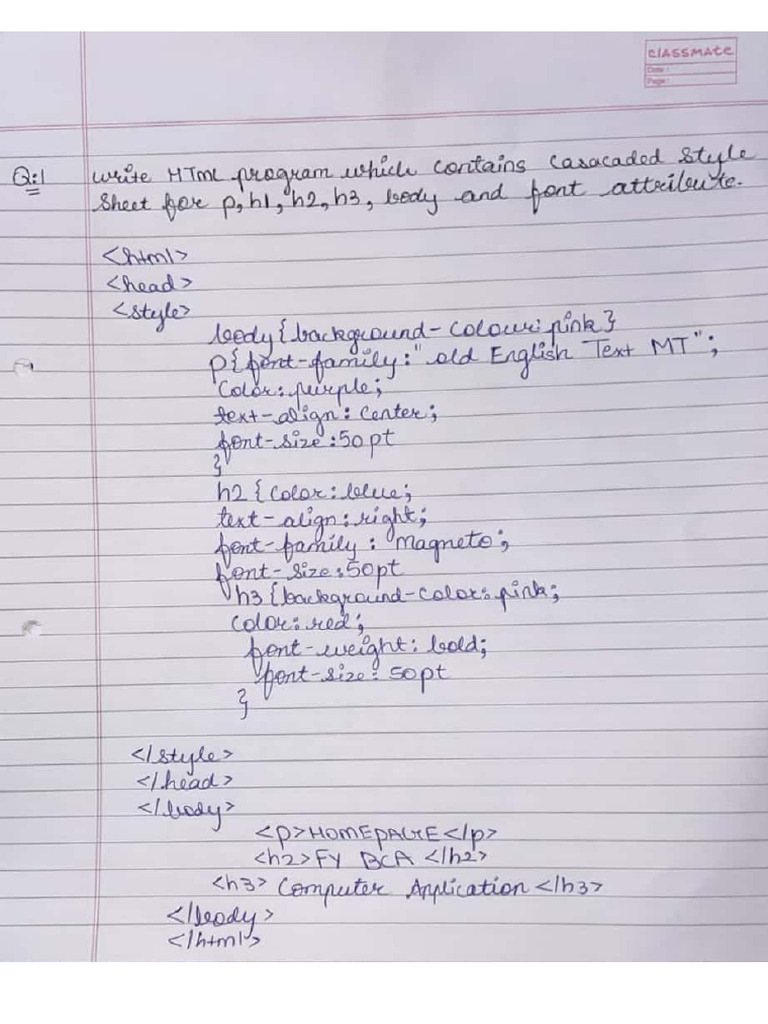 CLASSMATE
Date :
Page :
Q:1 write HTML program which contains Casacaded Style
Sheet for p, h1, h2, h3, body and font attribute.
<html>
<head>
<style>
body{background-colour:pink}
p{font-family:"old English Text MT";
Color:purple;
text-align:center;
font-size:50pt
}
h2{color:blue;
text-align:right;
font-family: "magneto;
font-size:50pt
h3{background-color:pink;
color:red;
font-weight:bold;
font-size:50pt
}
</style>
</head>
</body>
<p>HOMEPAGE</p>
<h2>FY BCA </h2>
<h3> Computer Application </h3>
</body>
</html>